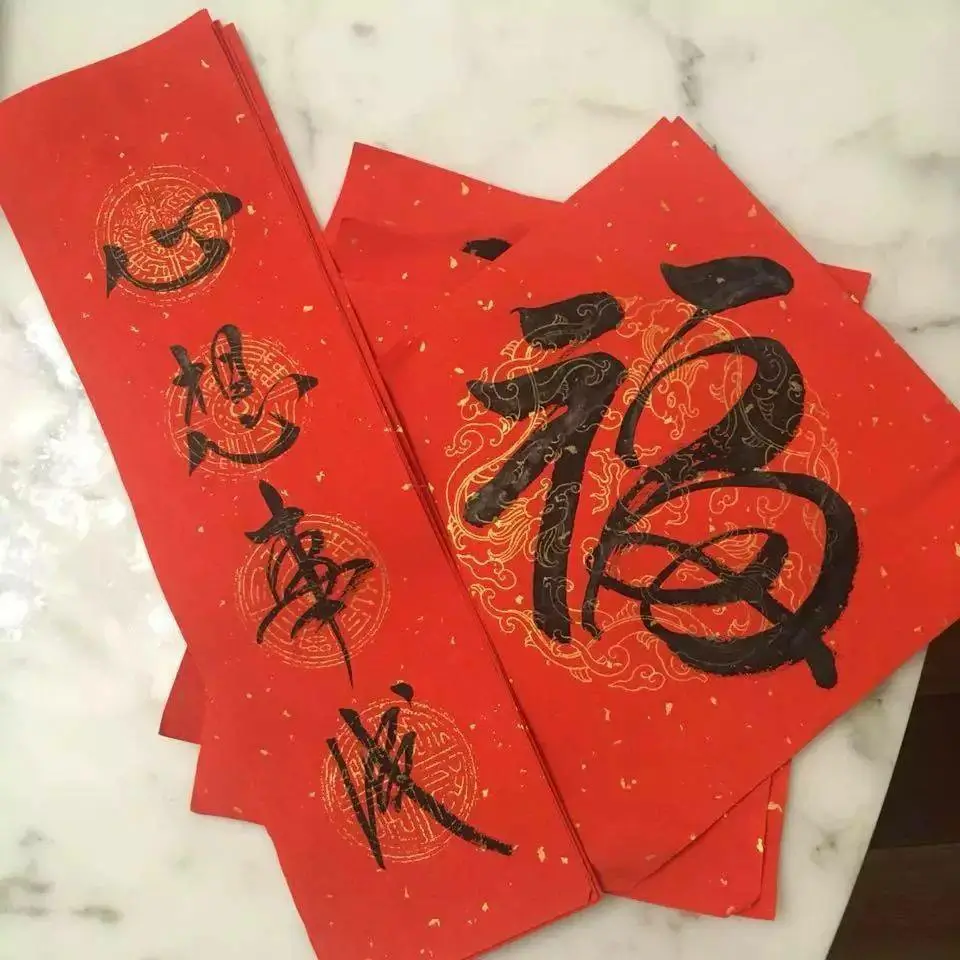 心想事成
福